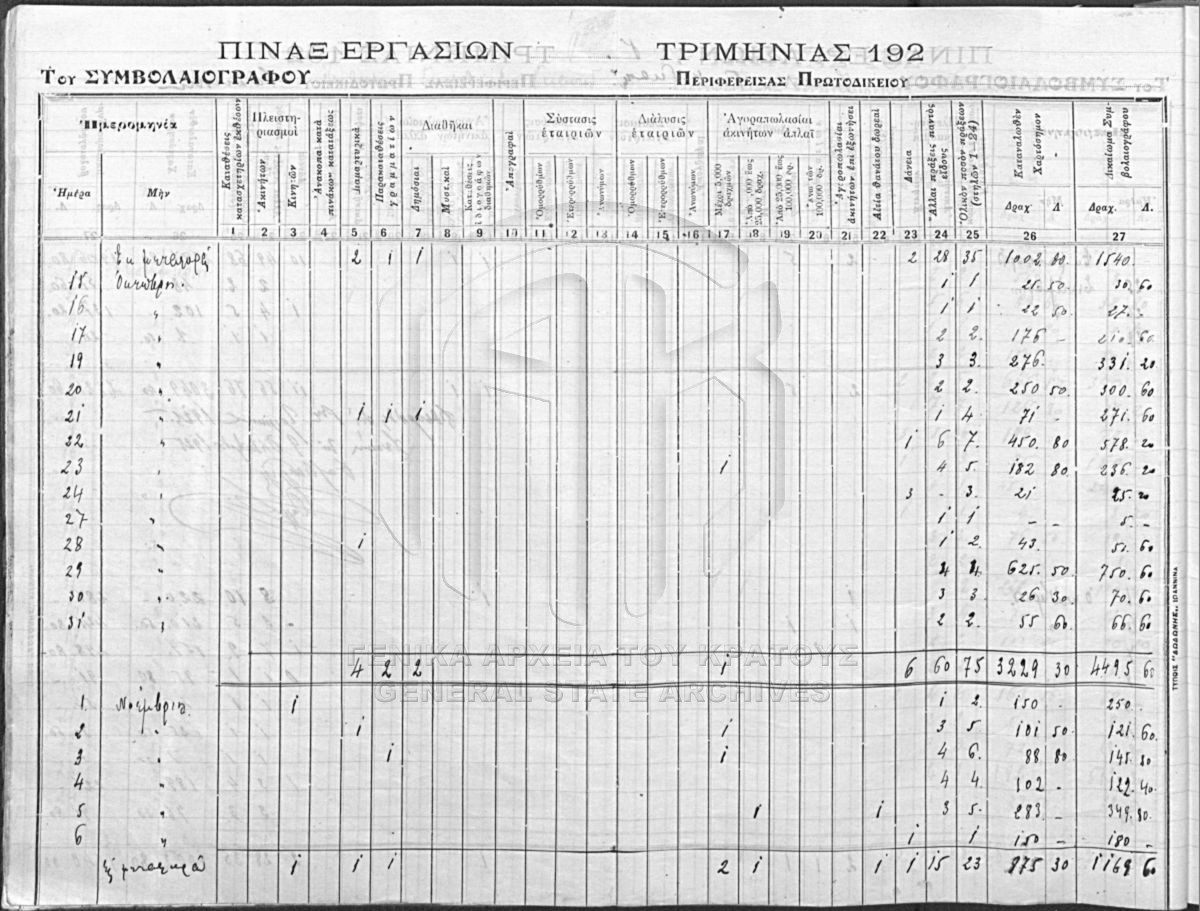 ΠΙΝΑΞ ΕΡΓΑΣΙΩΝ ΤΡΙΜΗΝΙΑΣ 192
Του ΣΥΜΒΟΛΑΙΟΓΡΑΦΟΥ ΠΕΡΙΦΕΡΕΙΣΑΣ ΠΡΩΤΟΔΙΚΕΙΟΥ
Ἡμερομηνία
Ἡμέρα Μὴν
Καταθέσεις κατασχετηρίων ἐκθέσεων
Πλειστηριασμοὶ
Ἀκινήτων
Κινητῶν
Ἀνακοπαὶ κατὰ πινάκων κατατάξεως
Μαρτυρικὰ
Παρακαταθέσεις γραμματίων
Διαθῆκαι
Δημόσιαι
Μυστικαὶ
Καταθέσεις ἰδιογράφων διαθηκῶν
Ἀπογραφαὶ
Σύστασις ἑταιριῶν
Ὁμορρύθμων
Ἑτερορρύθμων
Ἀνωνύμων
Διάλυσις ἑταιριῶν
Ὁμορρύθμων
Ἑτερορρύθμων
Ἀνωνύμων
Ἀγοραπωλασίαι ἀκινήτων ἁπλαῖ
Μέχρι 5,000 δραχμῶν
Ἀπὸ 5,000 ἕως 25,000 δραχ.
Ἀπὸ 25,000 ἕως 100,000 δρ.
Ἄνω τῶν 100,000 δρ.
Ἀγοροπωλασίαι ἀκινήτων ἐπὶ ἐξωνήσει
Αἰτία θανάτου δωρεαὶ
Δάνεια
Ἄλλαι πράξεις παντὸς εἴδους
Ὁλικὸν ποσὸν πράξεων (στηλῶν 1—24)
Καταναλωθὲν Χαρτόσημον
Δραχ. Λ.
Δικαιώματα Συμβολαιογράφου
Δραχ. Λ.
1 2 3 4 5 6 7 8 9 10 11 12 13 14 15 16 17 18 19 20 21 22 23 24 25 26 27
Ἐκ μεταφορᾶς 2 1 1 2 28 35 1002 80. 1540.
15. Ὀκτωβρίου 1 1 25. 50. 30. 60
16. „ 1 1 22 50 27. -
17 „ 2 2. 176 - 210. 60.
19 „ 3 3. 276. 331. 20
20 „ 2 2. 250 50. 300. 60
21 „ 1 1 1 1 4. 71 - 271. 60
22 „ 1 6 7. 450. 80 578. 20
23 „ 1 4 5. 182 80 236. 20
24 „ 3 - 3. 21 25. 20
27 „ 1 1 - - 5. -
28 „ 1 1 2. 43. 51. 60
29 „ 4 4. 625. 50. 750. 60
30 „ 3 3. 26 30. 70. 60
31 „ 2 2. 55 60. 66. 60
4 2 2 1 6 60 75 3229 30 4495 60
1. Νοέμβριος 1 1 2. 150 - 250 -
2 „ 1 1 3 5. 101 50 121. 60.
3 „ 1 1 4 6. 88 80 145. 80
4 „ 4 4. 102 - 122. 40.
5 „ 1 1 3 5. 283 - 349. 80.
6 „ 1 1 150 - 180 -
Εἰς μεταφορὰν 1 1 1 2 1 1 1 15 23 875 30 1169 60
ΓΕΝΙΚΑ ΑΡΧΕΙΑ ΤΟΥ ΚΡΑΤΟΥΣ
GENERAL STATE ARCHIVES
ΤΥΠΟΙΣ "ΔΩΔΩΝΗΣ", ΙΩΑΝΝΙΝΑ